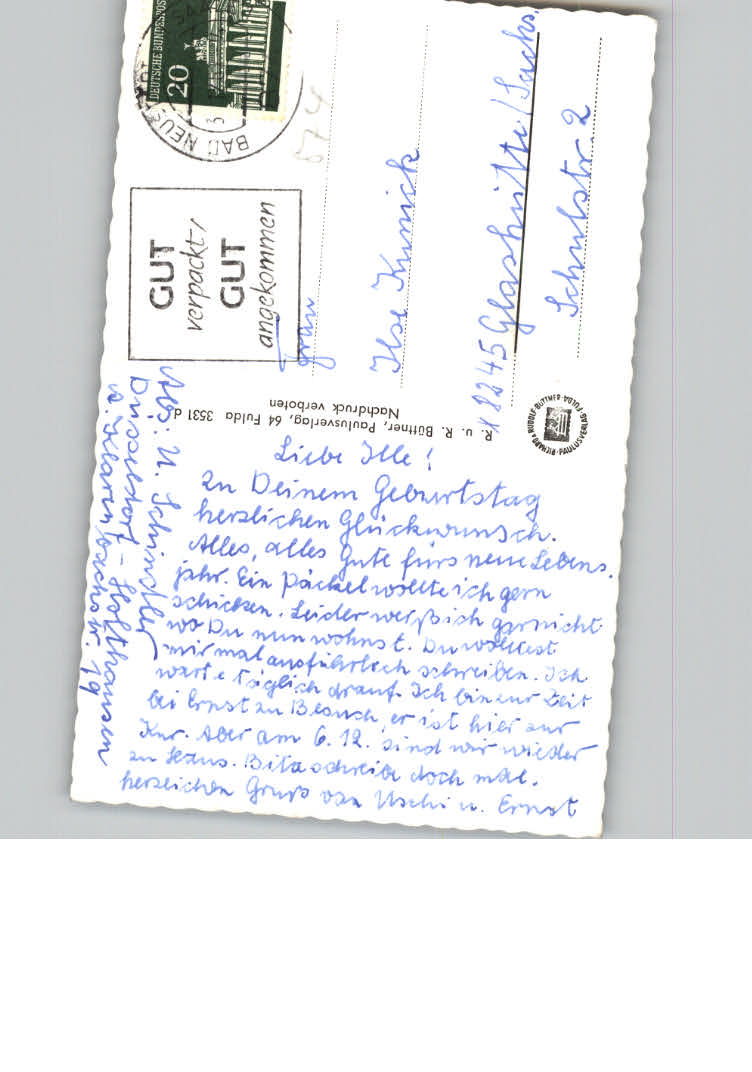 Liebe Ille!
zu Deinem Geburtstag
herzlichen Glückwunsch.
Alles, alles Gute fürs neue Lebens.
jahr. Ein Päckel wollte ich gern
schicken. Leider weiß ich garnicht
wo Du nun wohnst. Du wolltest
mir mal ausführlich schreiben. Ich
warte täglich drauf. Ich bin zur Zeit
bei Ernst zu Besuch, er ist hier zur
Kur. Aber am 6. 12. sind wir wieder
zu Haus. Bitte schreib doch mal.
herzlichen Gruss von Uschi u. Ernst
Abs.: U. Schindler
Düsseldorf - Holthausen
19
R. u. R. Büttner, Paulusverlag, 64 Fulda 3531 d
Nachdruck verboten
RICHARD & RUDOLF BÜTTNER · FULDA
PAULUSVERLAG
DEUTSCHE BUNDESPOST
20
BAD NEUSTADT
GUT
verpackt,
GUT
angekommen
Frau
Ilse Kunick
x 8245 Glashütte / Sachs.
Schulstr. 2